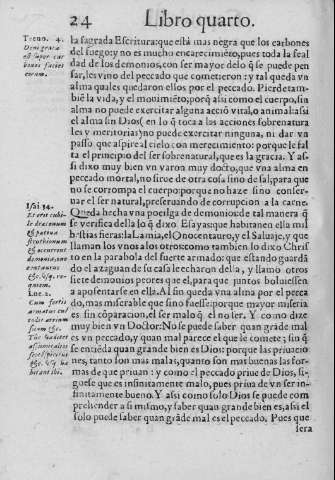 24 Libro quarto.
Treno. 4.
Deni grata
est super car
bones facies
eorum.
la sagrada Escritura: que está mas negra que los carbones
del fuego: y no es mucho encarecimiẽto, pues toda la feal
dad de los demonios, con ser mayor delo q̃ se puede pen
sar, les vino del peccado que cometieron: y tal queda vn
alma quales quedaron ellos por el peccado. Pierde tam-
biẽ la vida, y el mouimiẽto, porq̃ asi como el cuerpo, sin
alma no puede exercitar alguna acció vital, o animal: asi
el alma sin Dios (en lo q̃ toca a las acciones sobrenatura
les y meritorias) no puede exercitar ninguna, ni dar vn
passo que aspire al cielo: con merecimiento: porque le fal
ta el principio del ser sobrenatural, que es la gracia. Y as-
si dixo muy bien vn varon muy docto, que vna alma en
peccado mortal, no sirue de otra cosa sino de sal, para que
no se corrompa el cuerpo: porque no haze sino conser-
uar el ser natural, preseruando de corrupcion a la carne.
Isai 34.
Et erit cubi-
le draconum
& pascua
struthionum
& occurrent
demonia, ono
centauris
&c. usq. re-
quiem.
Luc. 2.
Cum fortis
armatus cus
todit atrium
suum &c.
Tūc vadit et
assumit alios
septē spiritus
&c. usq. ha
bitant ibi.
Queda hecha vna pocilga de demonios: de tal manera q̃
se verifica della lo q̃ dixo Esayas que habitaen ella mil
bestias fieras: la Lamia, el Onocentauro, y el Saluaje, y que
llaman los vnos a los otros: como tambien lo dixo Christ
to en la parabola del fuerte armado: que estando guardá
do el azaguan de su casa le echaron della, y llamó otros
siete demonios peores que el, para que juntos boluiessen
a aposentarse en ella. Al fin queda vna alma por el pecca
do, mas miserable que sino fuesse: porque mayor miseria
es sin cõparacion, el ser malo q̃ el no ser. Y como dize
muy bien vn Doctor: No se puede saber quan grãde mal
es vn peccado, y quan mal parece el que le comete; sin q̃
se entiẽda quan grande bien es Dios: porque las priuacio
nes, tanto son mas malas, quanto son mas buenas las for-
mas de que priuan: y como el peccado priue de Dios, si-
guese que es infinitamente malo, pues priua de vn ser in-
finitamente bueno. Y asi como solo Dios se puede com
prehender a si mismo, y saber quan grande bien es, asi el
solo puede saber quan grãde mal es el peccado. Pues que
sera